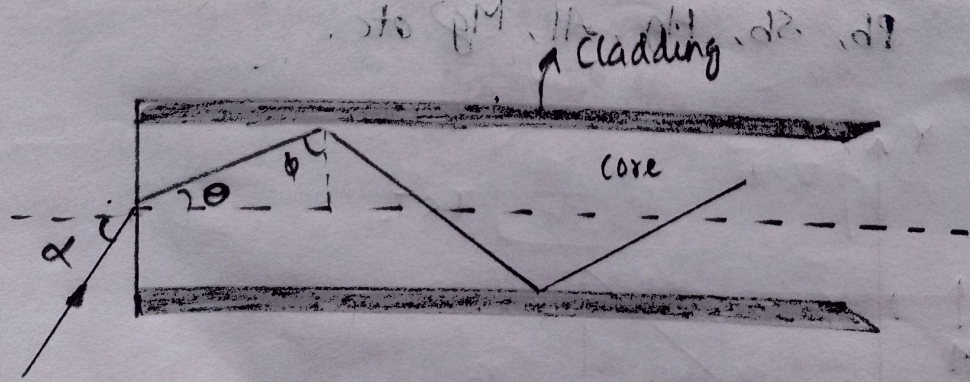 Cladding
Core
ϕ
θ
α